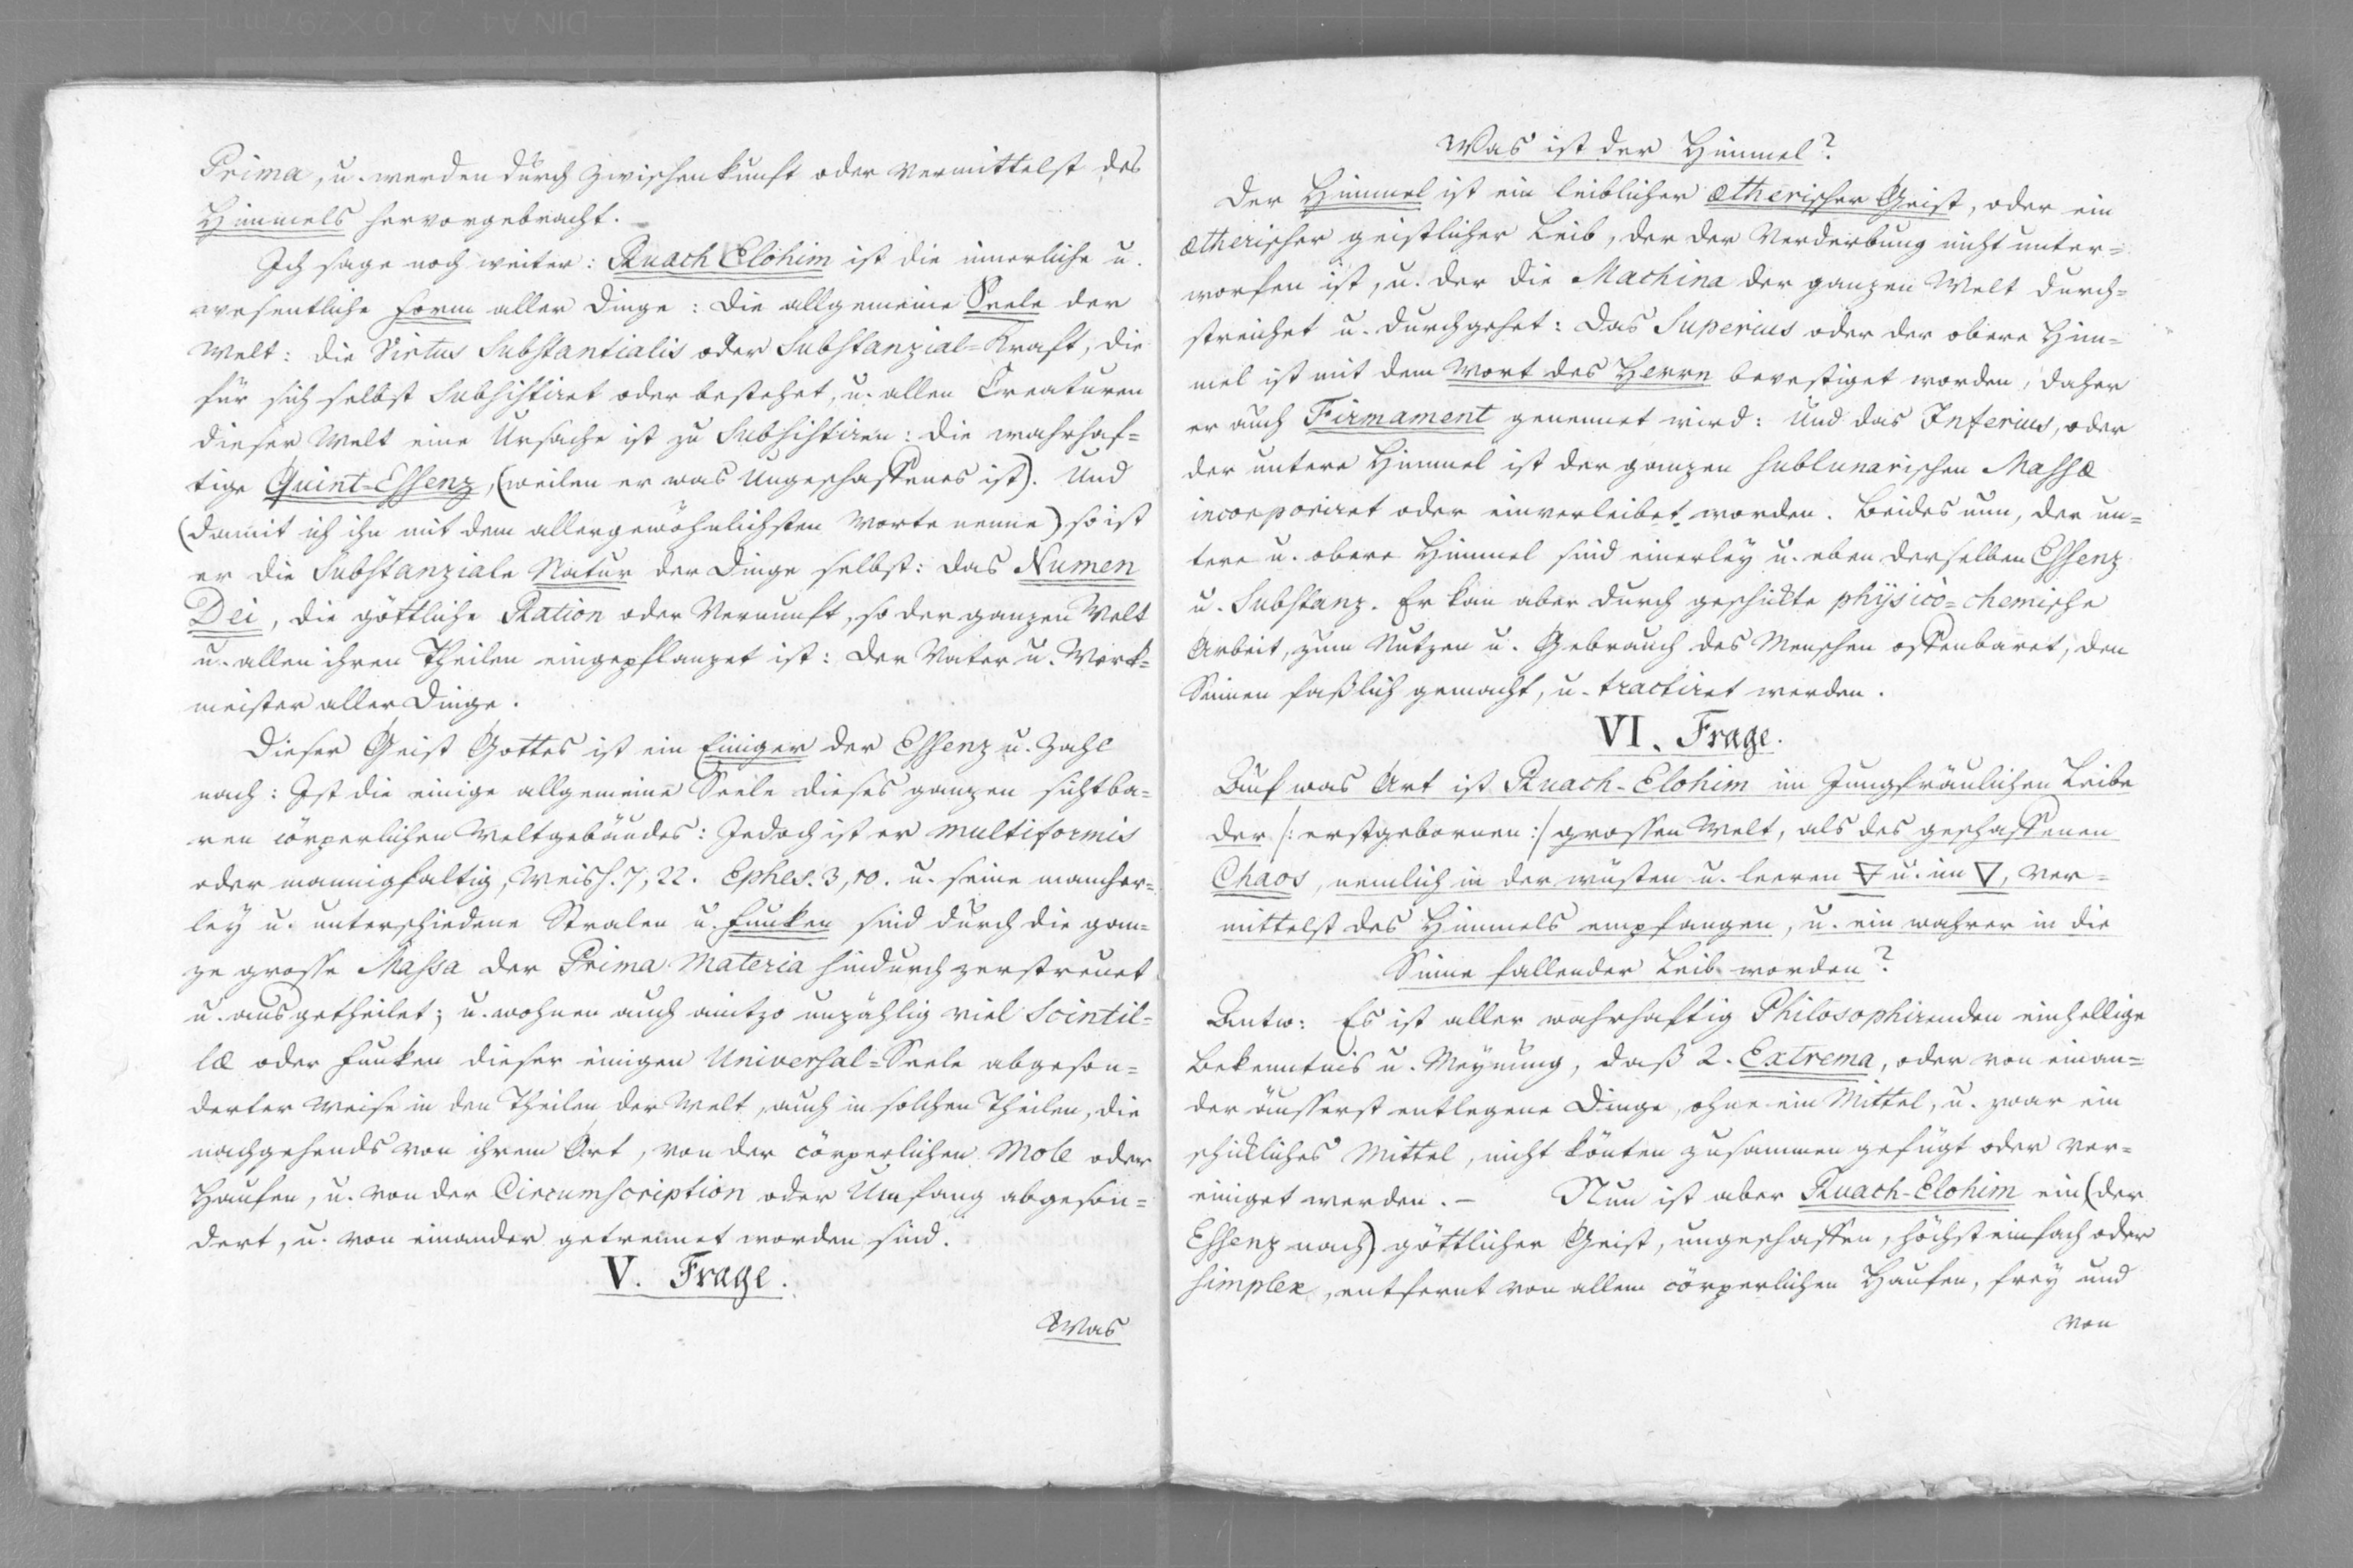 Prima, u. werden durch Zwischenkunft oder Vermittelst des
Himmels hervorgebracht.
Ich sage noch weiter: Ruach Elohim ist die innerliche u.
wesentliche Form aller Dinge: Die allgemeine Seele der
Welt: die Virtus Substantialis oder Substanzial=Kraft, die
für sich selbst subsistiret oder bestehet, u. allen Creaturen
dieser Welt eine Ursache ist zu subsistiren: die wahrhaf=
tige Quint=Essenz, (weilen er was Ungeschaffenes ist). Und
(damit ich ihn mit dem allergewöhnlichsten Worte nenne) so ist
er die Substanziale Natur der Dinge selbst: das Numen
Dei, die göttliche Ration oder Vernunft, so der ganzen Welt
u. allen ihren Theilen eingepflanzet ist: Der Vater u. Werk=
meister aller Dinge.
Dieser Geist Gottes ist ein Einiger der Essenz u. Zahl
nach: Ist die einige allgemeine Seele dieses ganzen sichtba=
ren cörperlichen Weltgebäudes: Jedoch ist er multiformis
oder mannigfaltig, Weish. 7, 22. Ephes. 3, 10. u. seine mancher=
ley u. unterschiedene Stralen u. Funken sind durch die gan=
ze grosse Massa der Prima Materia hindurch zerstreuet
u. ausgetheilet; u. wohnen auch anitzo unzählig viel Scintil=
læ oder Funken dieser einigen Universal=Seele abgeson=
derter Weise in den Theilen der Welt, auch in solchen Theilen, die
nachgehends von ihrem Ort, von der cörperlichen Mole oder
Haufen, u. von der Circumscription oder Umfang abgeson=
dert, u. von einander getrennet worden sind.
V. Frage.
Was
Was ist der Himmel?
Der Himmel ist ein leiblicher ætherischer Geist, oder ein
ætherischer geistlicher Leib, der der Verderbung nicht unter=
worfen ist, u. der die Machina der ganzen Welt durch=
streichet u. durchgehet: Das Superius oder der obere Him=
mel ist mit dem Wort des Herrn bevestiget worden, daher
er auch Firmament genennet wird: Und das Inferius, oder
der untere Himmel ist der ganzen sublunarischen Massæ
incorporiret oder einverleibet worden. Beides nun, der un=
tere u. obere Himmel sind einerley u. eben derselben Essenz
u. Substanz. Er kan aber durch geschickte physico=chemische
Arbeit, zum Nutzen u. Gebrauch des Menschen offenbaret, den
Sinnen faßlich gemacht, u. tractiret werden.
VI. Frage.
Auf was Art ist Ruach-Elohim im Jungfräulichen Leibe
der /: erstgebornen :/ grossen Welt, als des geschaffenen
Chaos, nemlich in der wüsten u. leeren 🜃 u. im 🜄, ver=
mittelst des Himmels empfangen, u. ein wahrer in die
Sinne fallender Leib worden?
Antw: Es ist aller wahrhaftig Philosophirenden einhellige
Bekenntnis u. Meynung, daß 2. Extrema, oder von einan=
der äusserst entlegene Dinge, ohne ein Mittel, u. zwar ein
schickliches Mittel, nicht könten zusammen gefügt oder ver=
einiget werden. – Nun ist aber Ruach-Elohim ein (der
Essenz nach) göttlicher Geist, ungeschaffen, höchst einfach oder
simplex, entfernt von allem cörperlichen Haufen, frey und
von